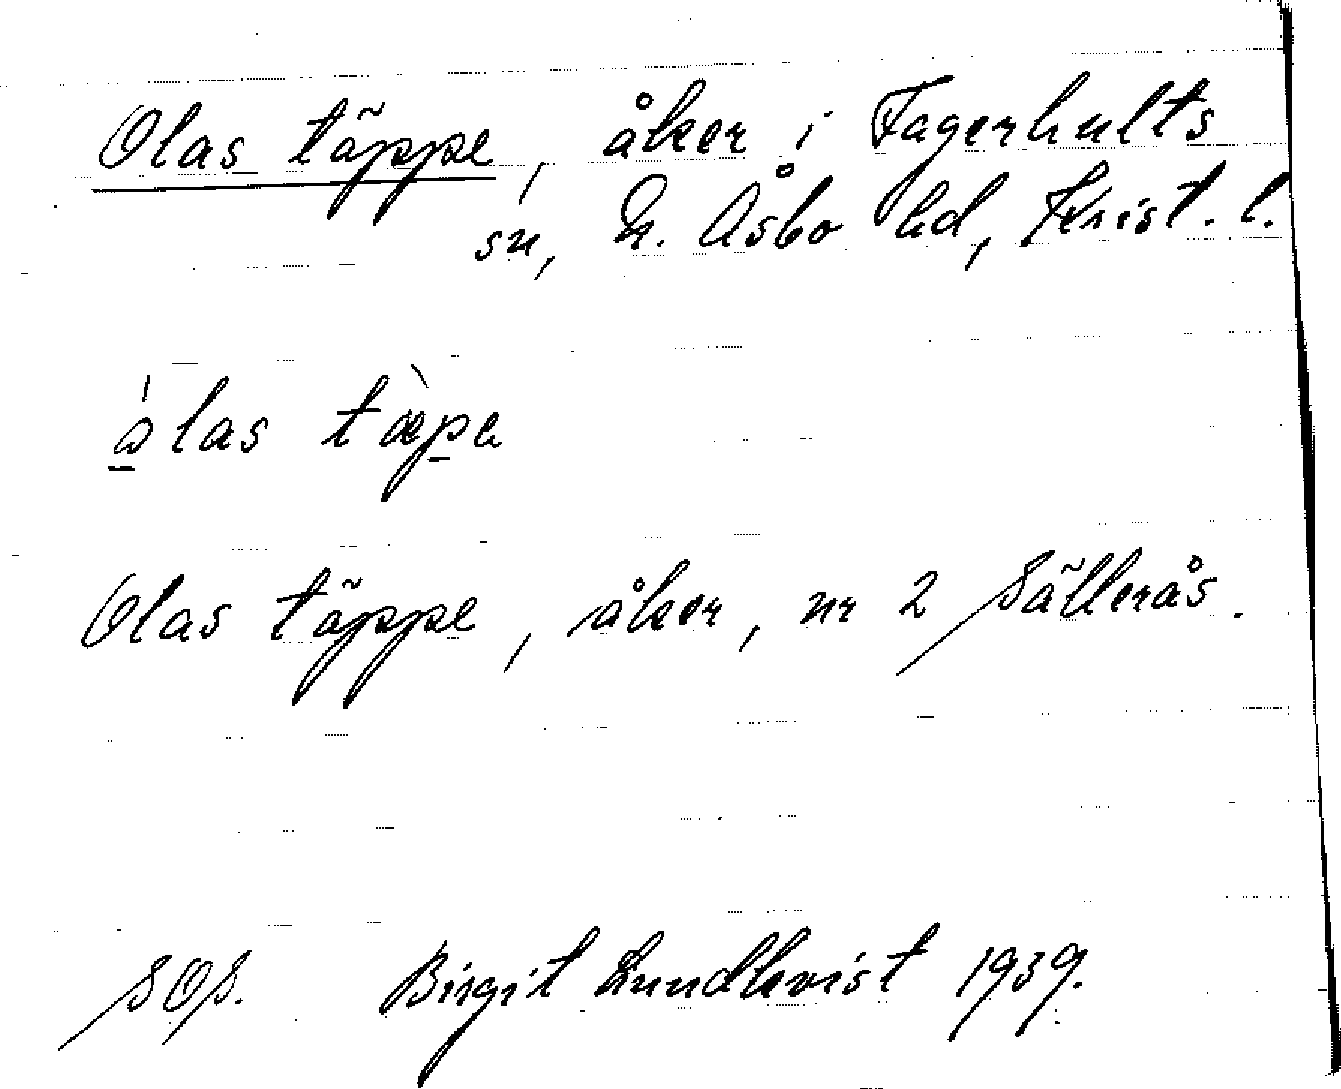 Olas täppe, åker i Fagerhults
sn, N. Åsbo hd, Krist. l.
Olas täppe, åker, nr 2 Sällerås.
SOS. Birgit Lundkvist 1939.